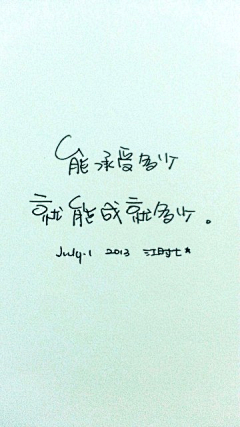 能承受多少
就能成就多少。
July.1 2013 江时七